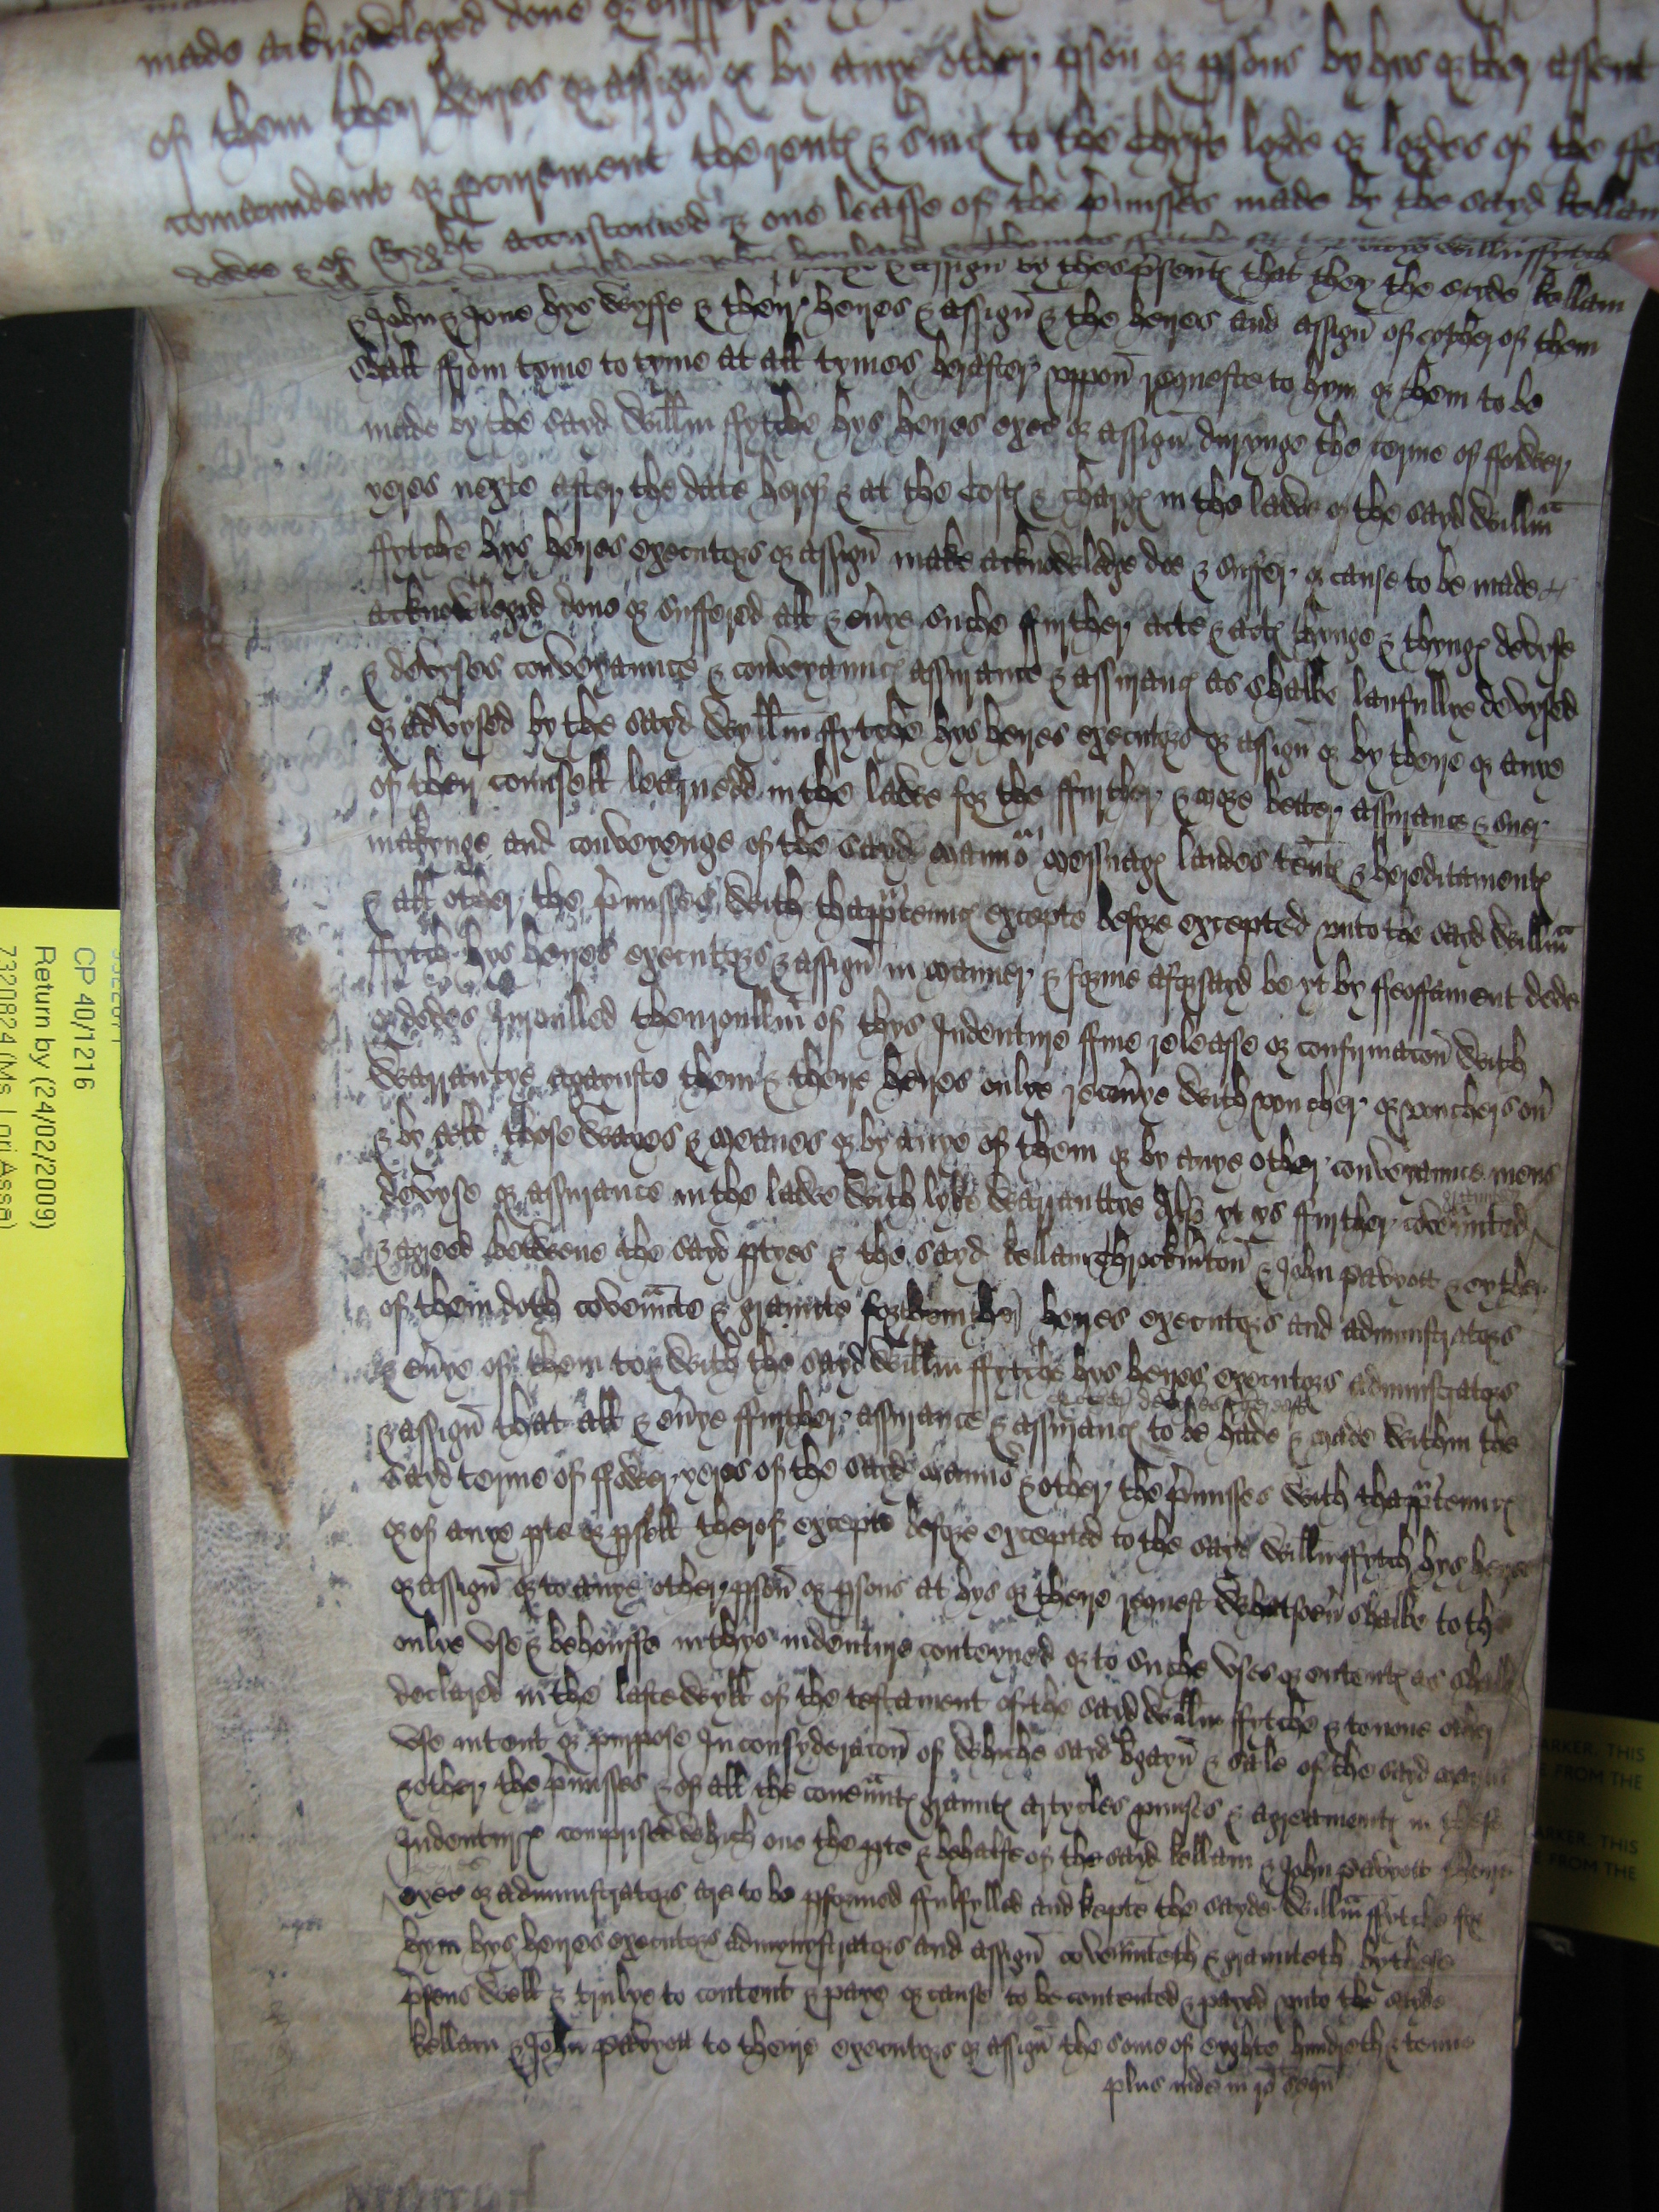 made acknowleged done or suffered
of them ther heyres or assign or by anye other pson or psons by hys or ther assent
comaundent or pcurement the rent & svic to the chyffe lorde or lordes of the ffe
dewe & of Ryght accustomed & one leasse of the pmisses made by the sayd kellam
& assign by thes psent that they the sayde kellam
& John & Jone hys wyffe & ther heyres & assign & the heyres and assign of eyther of them
shall from tyme to tyme at all tymes herafter uppon requeste to hym or them to be
made by the sayd Willm ffytche hys heyres exec or assign durynge the terme of ffower
yeres nexte after the date herof & at the cost & charg in the lawe of the sayd Willm
ffytche hys heyres executors or assign make acknowledge doe & suffer or cause to be made
acknowlegyd done or suffered all & evye suche further acte & act thynge & thyng devyse
& devyses conveyaunce & conveyaunc assurance & assuranc as shalbe laufullye devysed
or advysed by the sayd Wyllm ffytche hys heyres executors or assign or by theyre or anye
of ther counsell learnedd in the lawe for the ffurther & more better assurance & suer
makynge and conveyenge of the sayd mannor messuag landes tent & hereditament
& all other the pmisses with thapptennc excepte before excepted unto the sayd Willm
ffytch hys heyres executors & assign in manner & forme aforsayd be yt by feoffament dede
or dedes Inroulled thenroullm of thys Indenture ffine releasse or confirmacon with
Warrantye agaynste them & there heyres onlye recovye with voucher or vouchers ov
& by all those wayes & meanes or by anye of them or by anye other conveyaunce mens
devyse or assurance in the lawe with lyke warranttye Also yt ys further covennted
& agreed betwene the sayd ptyes & the sayd kellam Throckmton & John Pavyott & eyther
of them doth covennte & graunte for them ther heyres executors and administrators
& evye of them to & with the sayd Willm ffytche hys heyres executors administrators
& assign that all & evye ffurther assurance & assuranc to be hade & made within the
sayd terme of ffower yeres of the sayd mannor & other the pmisses with thapptennc
or of anye pte or psell therof excepte before excepted to the sayd Willm ffytch hys heyres
or assign or to anye other pson or psons at hys or theyre request whatsoev shalbe to the
onlye use & behouffe in thys indenture conteyned or to suche uses or entent as shall
declared in the laste wyll of the testament of the sayd Willm ffytche & to none other
use intent or purpose In consyderacon of whiche sayd bgayn & sale of the sayd mannor
& other the pmisses & of all the covennt graunt artycles pmises & agreament in these
Indentur comprised which one the pte & behalfe of the sayd kellam & John Pavyott
exec or administrators are to be pformed ffulfylled and kepte the sayde Willm ffytche for
hym hys heyres executors admynystrators and assign covennteth & graunteth by these
psens well & trulye to content & paye or cause to be contented & payed unto the sayde
kellam & John Pavyott to theyre executors or assign the some of eyghte hundreth & tenne
plus inde in ro sequn
CP 40/1216
Return by (24/02/2009)
7320824 (Ms Lori Assa)
ARKER. THIS
E FROM THE
ARKER. THIS
E FROM THE